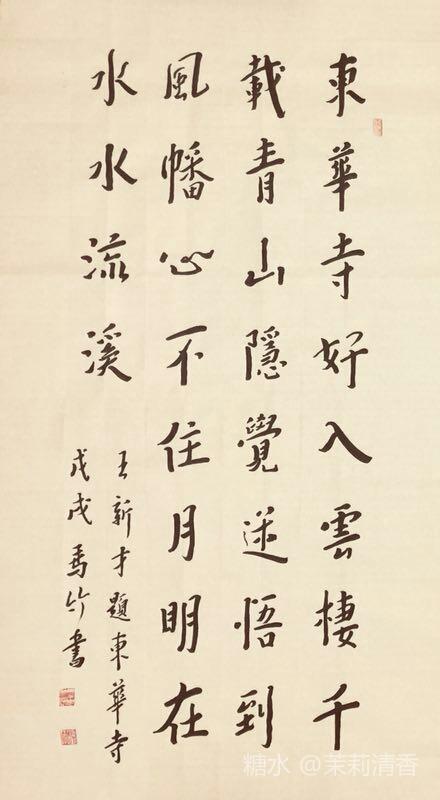 東華寺好入雲棲千
載青山隱覺迷悟到
風幡心不住月明在
水水流溪
王新才題東華寺
戊戌馬竹書
糖水 @茉莉清香